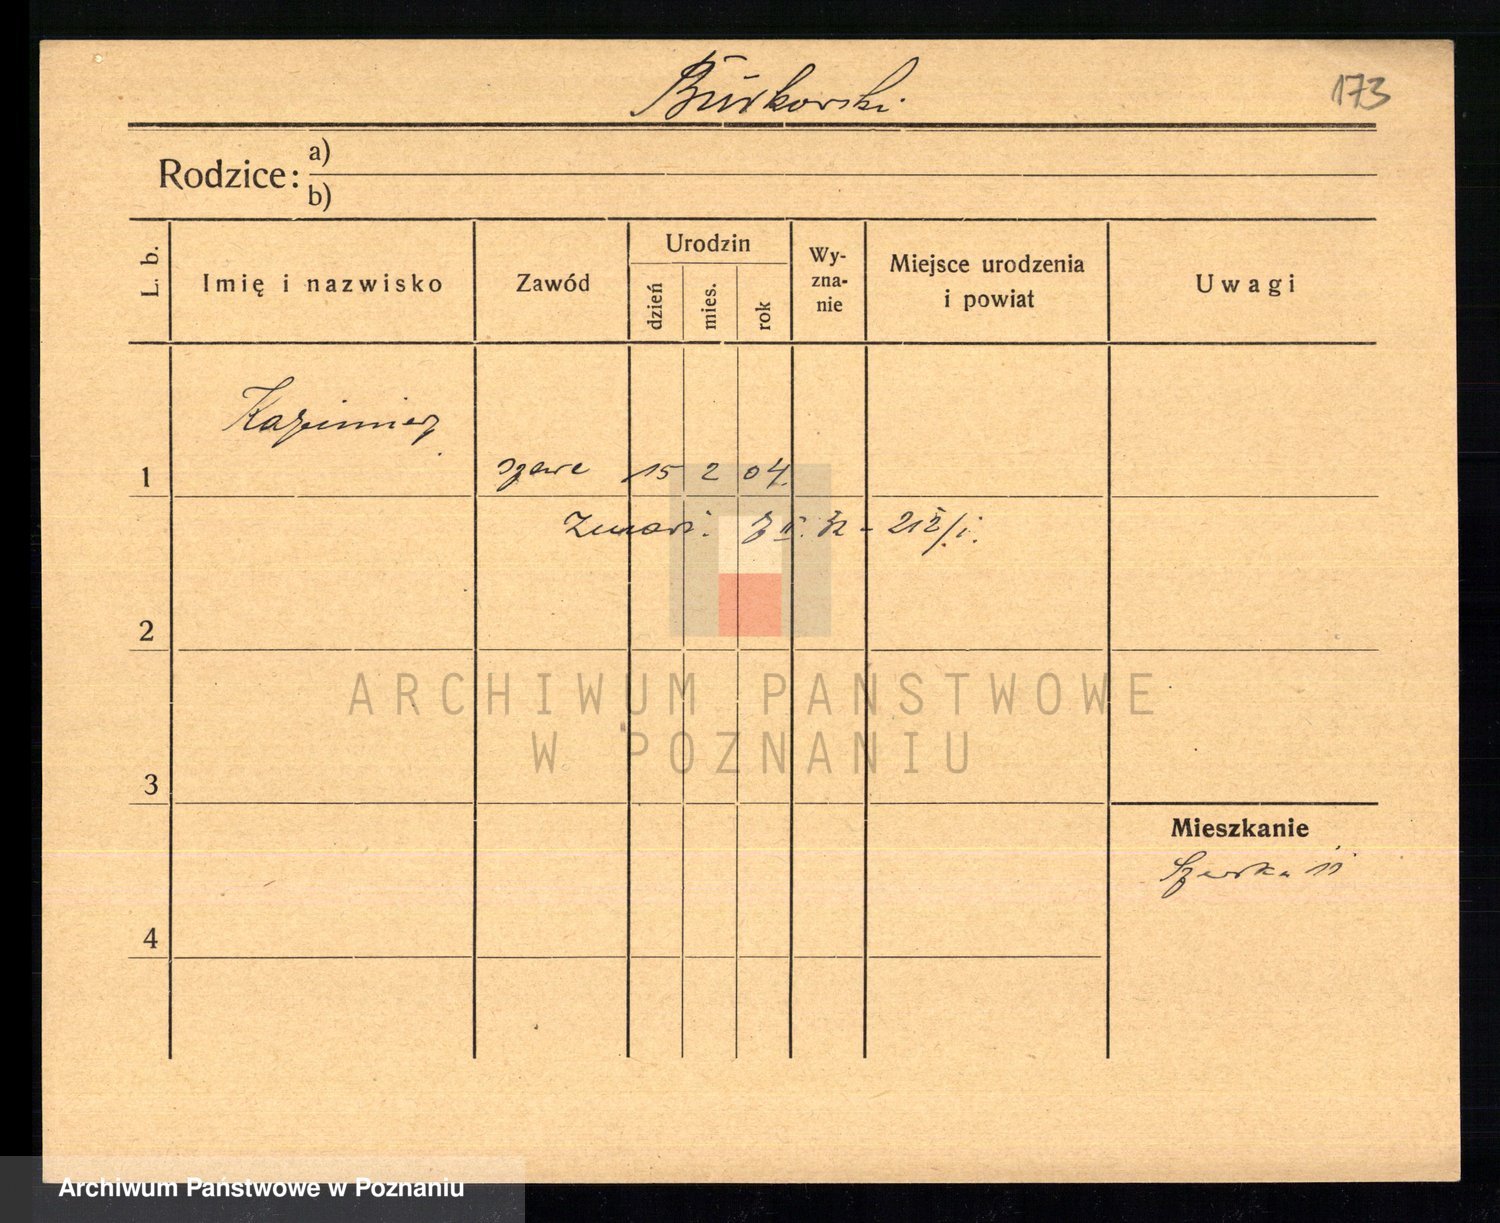 Burkowski
173
Rodzice: a)
b)
L. b.
Imię i nazwisko
Zawód
Urodzin
dzień
mies.
rok
Wy-
zna-
nie
Miejsce urodzenia
i powiat
Uwagi
Kazimierz
1
szewc 15 2 04.
212/I.
2
3
Mieszkanie
11
4
ARCHIWUM PAŃSTWOWE
W POZNANIU
Archiwum Państwowe w Poznaniu